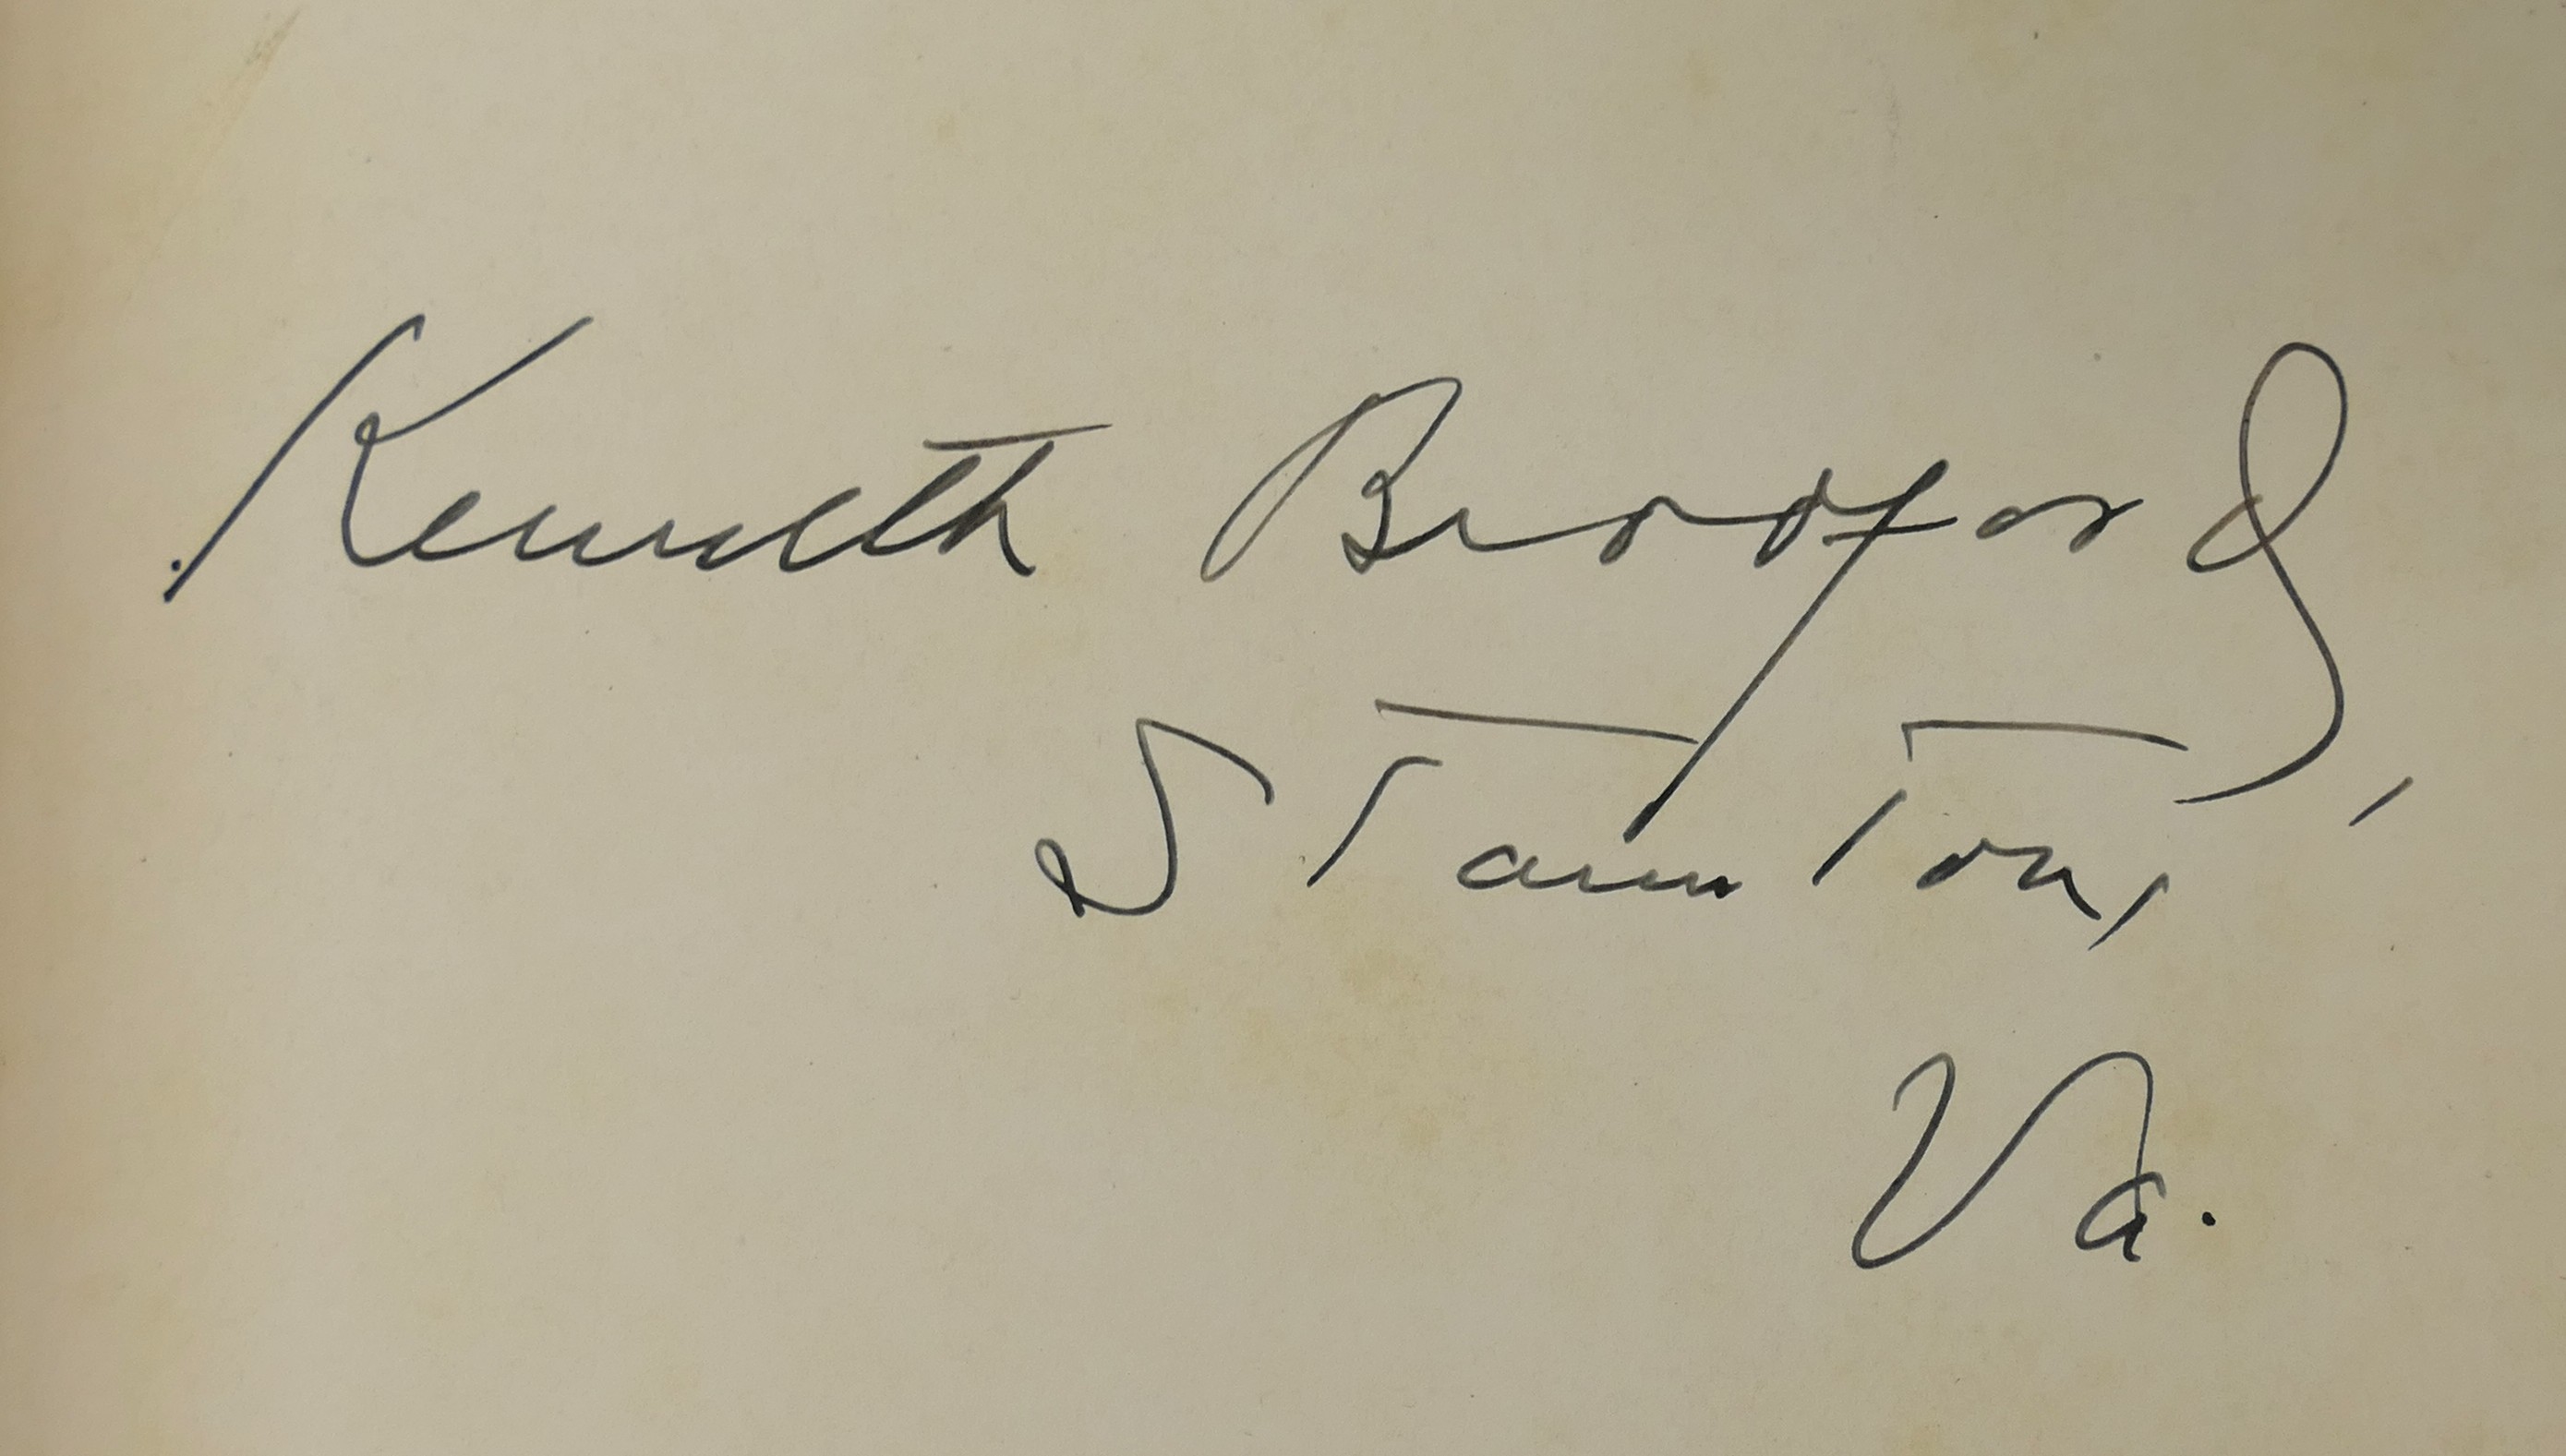 Kenneth Bradford,
Staunton,
Va.